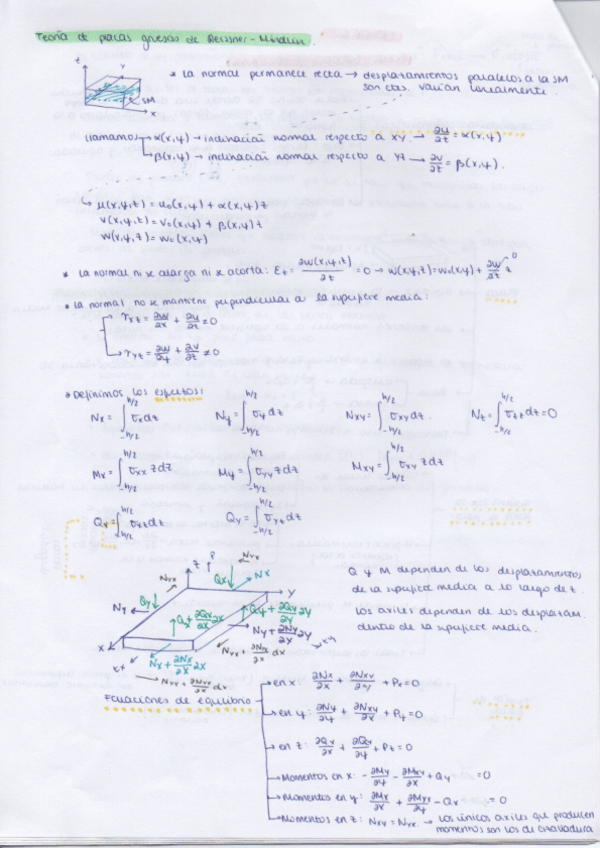 Teoría de placas gruesas de Reissner-Mindlin.
z
y
x
SM
* La normal permanece recta → desplazamientos paralelos a la SM
son ctes. varían linealmente.
Llamamos → α(x,y) → inclinación normal respecto a XY → ∂u/∂z = α(x,y)
→ β(x,y) → inclinación normal respecto a YZ → ∂v/∂z = β(x,y).
↳ u(x,y,z) = u₀(x,y) + α(x,y) z
v(x,y,z) = v₀(x,y) + β(x,y) z
w(x,y,z) = w₀(x,y)
* La normal ni se alarga ni se acorta: εz = ∂w(x,y,z)/∂z = 0 → w(x,y,z) = w₀(x,y) + ∂w/∂z z 0
* La normal no se mantiene perpendicular a la superficie media:
→ γxz = ∂w/∂x + ∂u/∂z ≠ 0
→ γyz = ∂w/∂y + ∂v/∂z ≠ 0
* Definimos los esfuerzos:
Nx = ∫_{-h/2}^{h/2} σx dz Ny = ∫_{-h/2}^{h/2} σy dz Nxy = ∫_{-h/2}^{h/2} σxy dz. Nz = ∫_{-h/2}^{h/2} σzz dz = 0
Mx = ∫_{-h/2}^{h/2} σxx z dz My = ∫_{-h/2}^{h/2} σyy z dz Mxy = ∫_{-h/2}^{h/2} σxy z dz
Qx = ∫_{-h/2}^{h/2} σxz dz Qy = ∫_{-h/2}^{h/2} σyz dz
Q y M dependen de los desplazamientos
de la superficie media a lo largo de z.
Los axiles dependen de los desplazam.
dentro de la superficie media.
z P Nyx
Nyx Qx Nx
Y
Ny Qy
Qy + ∂Qy/∂y ∂y
Ny + ∂Ny/∂y ∂y
X
Nx + ∂Nx/∂x ∂x
Ecuaciones de equilibrio
→ en x: ∂Nx/∂x + ∂Nxy/∂y + Px = 0
→ en y: ∂Ny/∂y + ∂Nxy/∂x + Py = 0
→ en z: ∂Qx/∂x + ∂Qy/∂y + Pz = 0
→ Momentos en x: - ∂My/∂y - ∂Mxy/∂x + Qy = 0
→ Momentos en y: ∂Mx/∂x + ∂Myx/∂y - Qx = 0
→ Momentos en z: Nxy = Nyx. → Los únicos axiles que producen
momentos son los de cizalladura